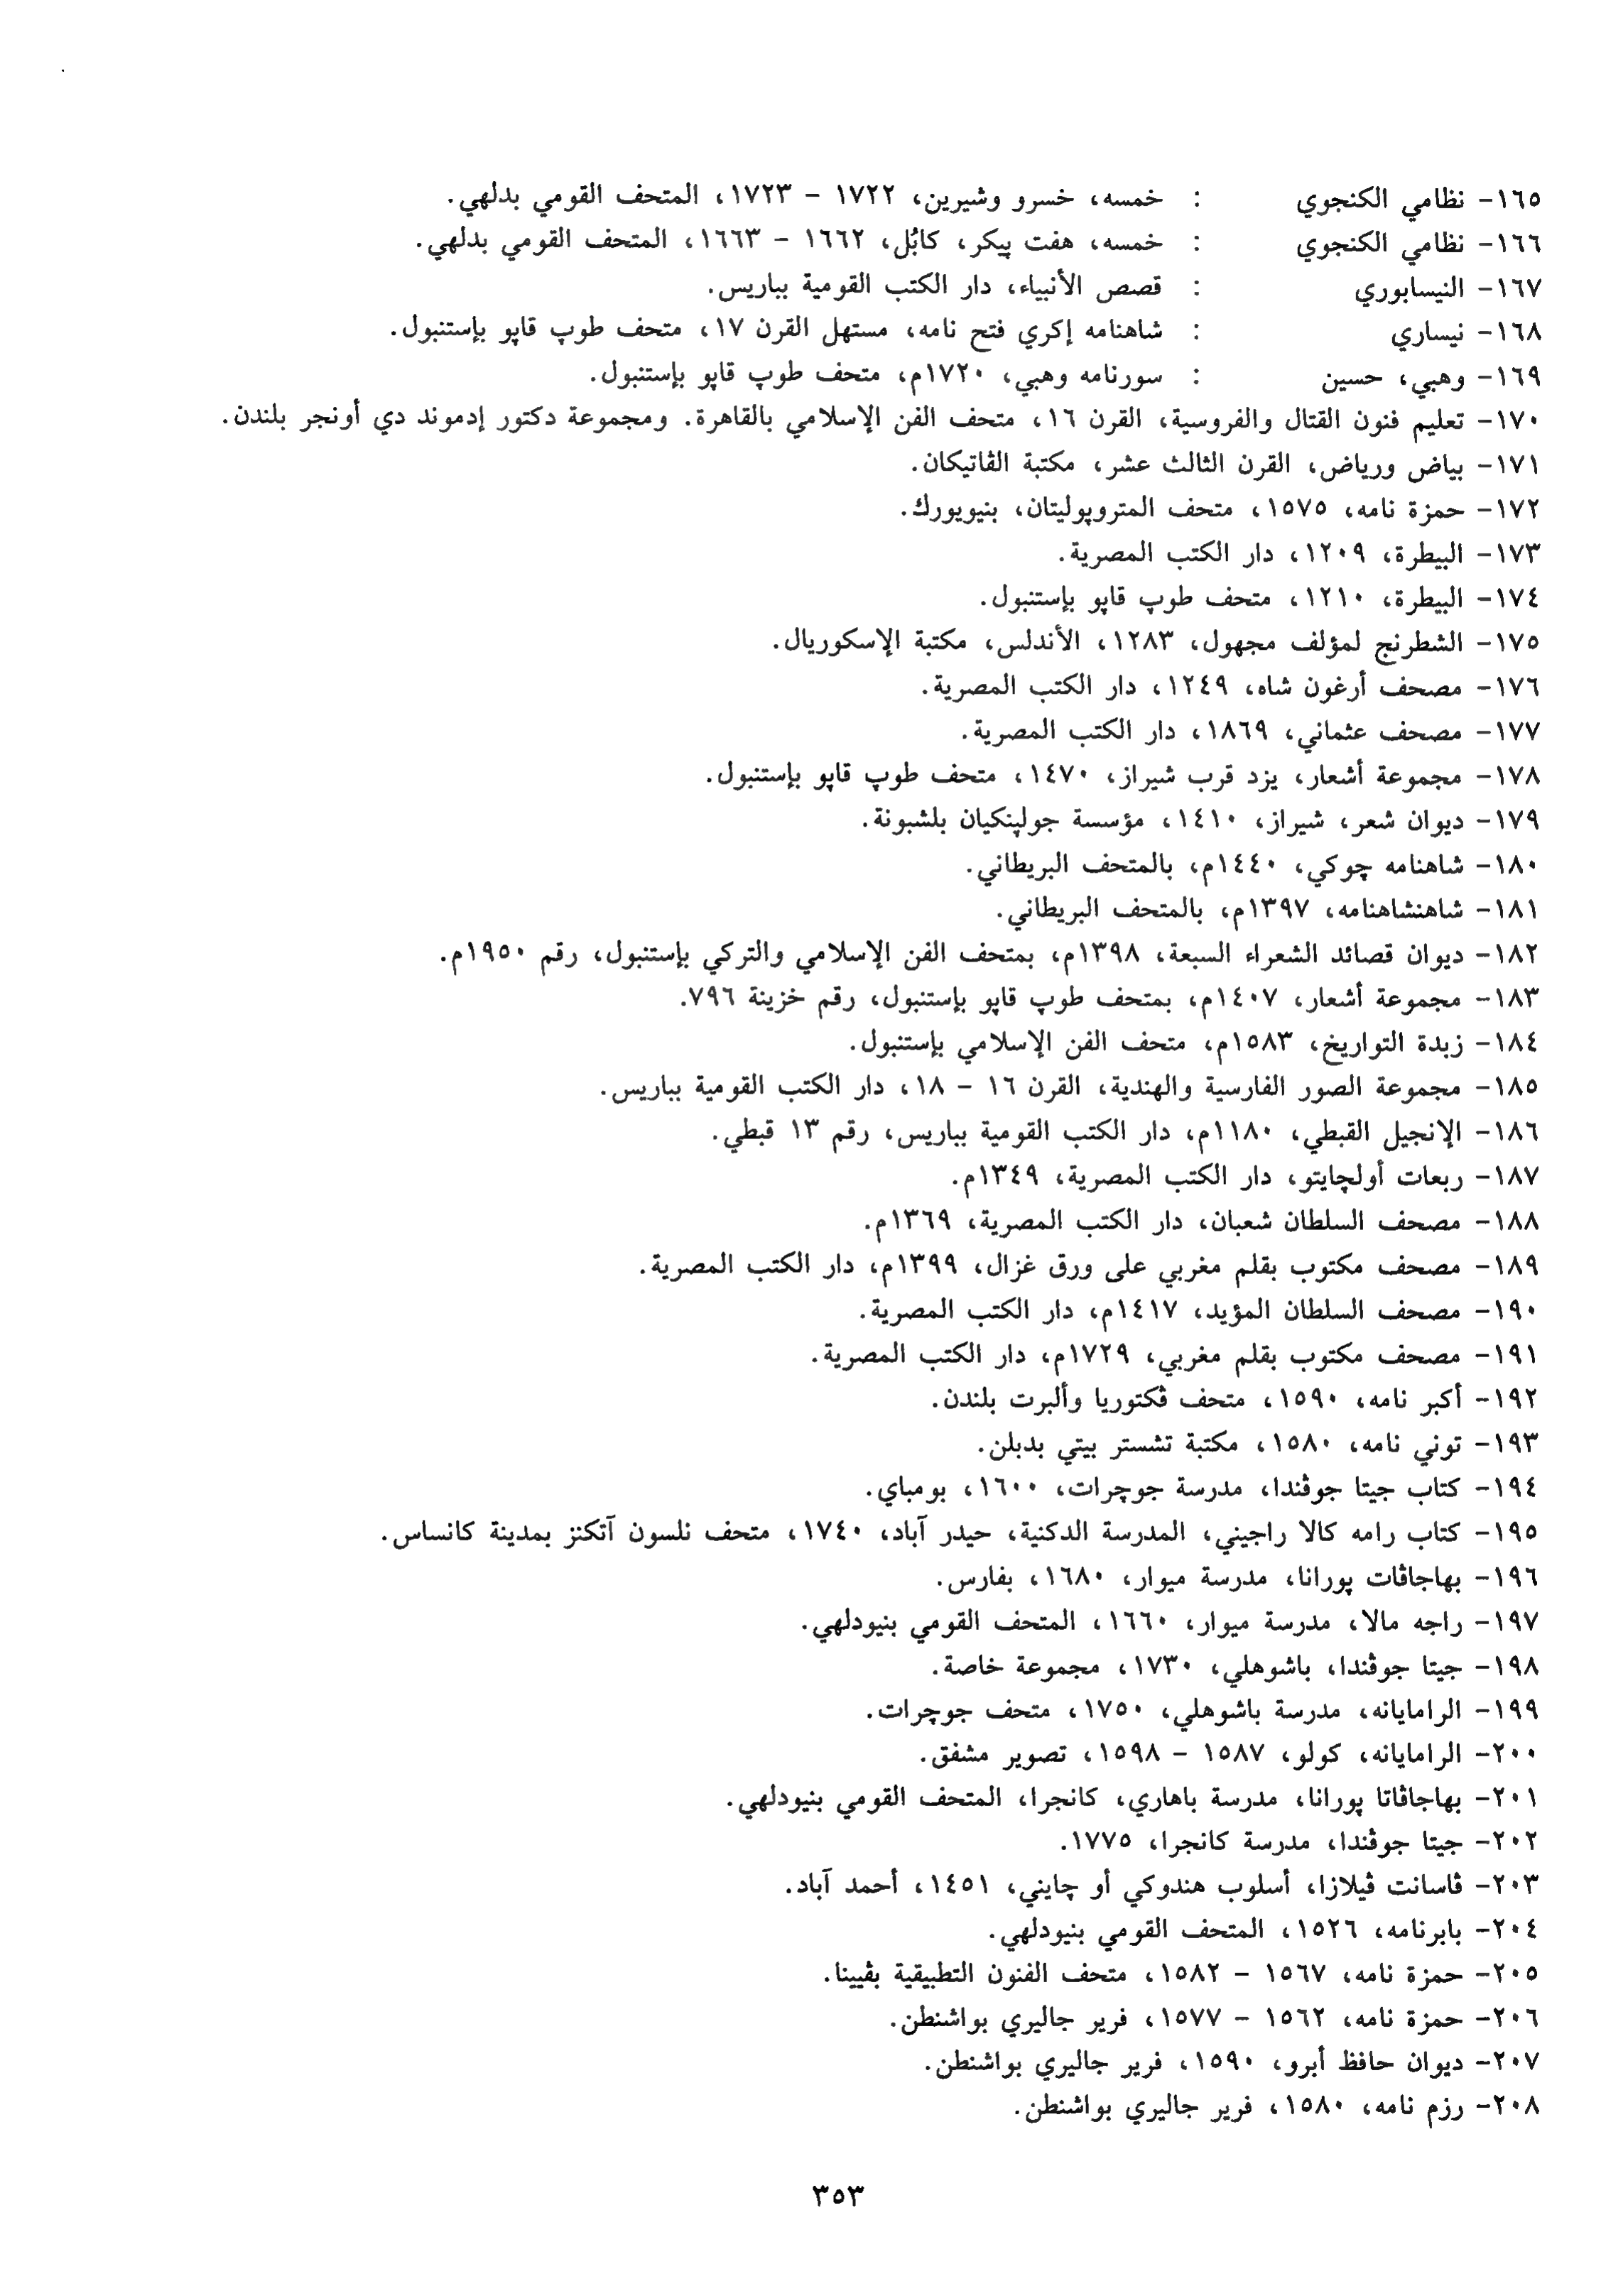 ١٦٥- نظامي الكنجوي : خمسه، خسرو وشيرين، ١٧٢٢ – ١٧٢٣، المتحف القومي بدلهي.
١٦٦- نظامي الكنجوي : خمسه، هفت پيكر، كابُل، ١٦٦٢ – ١٦٦٣، المتحف القومي بدلهي.
١٦٧- النيسابوري : قصص الأنبياء، دار الكتب القومية بباريس.
١٦٨- نيساري : شاهنامه إكري فتح نامه، مستهل القرن ١٧، متحف طوپ قاپو بإستنبول.
١٦٩- وهبي، حسين : سورنامه وهبي، ١٧٢٠م، متحف طوپ قاپو بإستنبول.
١٧٠- تعليم فنون القتال والفروسية، القرن ١٦، متحف الفن الإسلامي بالقاهرة. ومجموعة دكتور إدموند دي أونجر بلندن.
١٧١- بياض ورياض، القرن الثالث عشر، مكتبة الڤاتيكان.
١٧٢- حمزة نامه، ١٥٧٥، متحف المتروپوليتان، بنيويورك.
١٧٣- البيطرة، ١٢٠٩، دار الكتب المصرية.
١٧٤- البيطرة، ١٢١٠، متحف طوپ قاپو بإستنبول.
١٧٥- الشطرنج لمؤلف مجهول، ١٢٨٣، الأندلس، مكتبة الإسكوريال.
١٧٦- مصحف أرغون شاه، ١٢٤٩، دار الكتب المصرية.
١٧٧- مصحف عثماني، ١٨٦٩، دار الكتب المصرية.
١٧٨- مجموعة أشعار، يزد قرب شيراز، ١٤٧٠، متحف طوپ قاپو بإستنبول.
١٧٩- ديوان شعر، شيراز، ١٤١٠، مؤسسة جولپنكيان بلشبونة.
١٨٠- شاهنامه چوكي، ١٤٤٠م، بالمتحف البريطاني.
١٨١- شاهنشاهنامه، ١٣٩٧م، بالمتحف البريطاني.
١٨٢- ديوان قصائد الشعراء السبعة، ١٣٩٨م، بمتحف الفن الإسلامي والتركي بإستنبول، رقم ١٩٥٠م.
١٨٣- مجموعة أشعار، ١٤٠٧م، بمتحف طوپ قاپو بإستنبول، رقم خزينة ٧٩٦.
١٨٤- زبدة التواريخ، ١٥٨٣م، متحف الفن الإسلامي بإستنبول.
١٨٥- مجموعة الصور الفارسية والهندية، القرن ١٦ – ١٨، دار الكتب القومية بباريس.
١٨٦- الإنجيل القبطي، ١١٨٠م، دار الكتب القومية بباريس، رقم ١٣ قبطي.
١٨٧- ربعات أولچايتو، دار الكتب المصرية، ١٣٤٩م.
١٨٨- مصحف السلطان شعبان، دار الكتب المصرية، ١٣٦٩م.
١٨٩- مصحف مكتوب بقلم مغربي على ورق غزال، ١٣٩٩م، دار الكتب المصرية.
١٩٠- مصحف السلطان المؤيد، ١٤١٧م، دار الكتب المصرية.
١٩١- مصحف مكتوب بقلم مغربي، ١٧٢٩م، دار الكتب المصرية.
١٩٢- أكبر نامه، ١٥٩٠، متحف ڤكتوريا وألبرت بلندن.
١٩٣- توني نامه، ١٥٨٠، مكتبة تشستر بيتي بدبلن.
١٩٤- كتاب جيتا جوڤندا، مدرسة جوچرات، ١٦٠٠، بومباي.
١٩٥- كتاب رامه كالا راجيني، المدرسة الدكنية، حيدر آباد، ١٧٤٠، متحف نلسون آتكنز بمدينة كانساس.
١٩٦- بهاجاڤات پورانا، مدرسة ميوار، ١٦٨٠، بفارس.
١٩٧- راجه مالا، مدرسة ميوار، ١٦٦٠، المتحف القومي بنيودلهي.
١٩٨- جيتا جوڤندا، باشوهلي، ١٧٣٠، مجموعة خاصة.
١٩٩- الرامايانه، مدرسة باشوهلي، ١٧٥٠، متحف جوچرات.
٢٠٠- الرامايانه، كولو، ١٥٨٧ – ١٥٩٨، تصوير مشفق.
٢٠١- بهاجاڤاتا پورانا، مدرسة باهاري، كانجرا، المتحف القومي بنيودلهي.
٢٠٢- جيتا جوڤندا، مدرسة كانجرا، ١٧٧٥.
٢٠٣- ڤاسانت ڤيلازا، أسلوب هندوكي أو چايني، ١٤٥١، أحمد آباد.
٢٠٤- بابرنامه، ١٥٢٦، المتحف القومي بنيودلهي.
٢٠٥- حمزة نامه، ١٥٦٧ – ١٥٨٢، متحف الفنون التطبيقية بڤيينا.
٢٠٦- حمزة نامه، ١٥٦٢ – ١٥٧٧، فرير جاليري بواشنطن.
٢٠٧- ديوان حافظ أبرو، ١٥٩٠، فرير جاليري بواشنطن.
٢٠٨- رزم نامه، ١٥٨٠، فرير جاليري بواشنطن.
٣٥٣